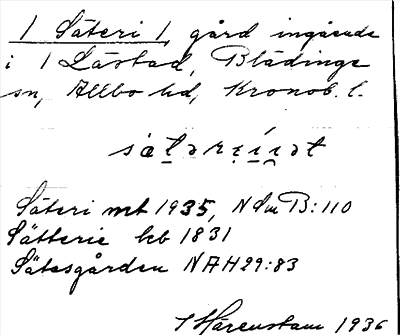 1 Säteri 1, gård ingående
i 1 Lästad, Blädinge
sn, Allbo hd, Kronob. l.
Säteri mt 1935, NSmB:110
Sätterie kb 1831
Sätesgården NAH29:83
Härenstam 1936